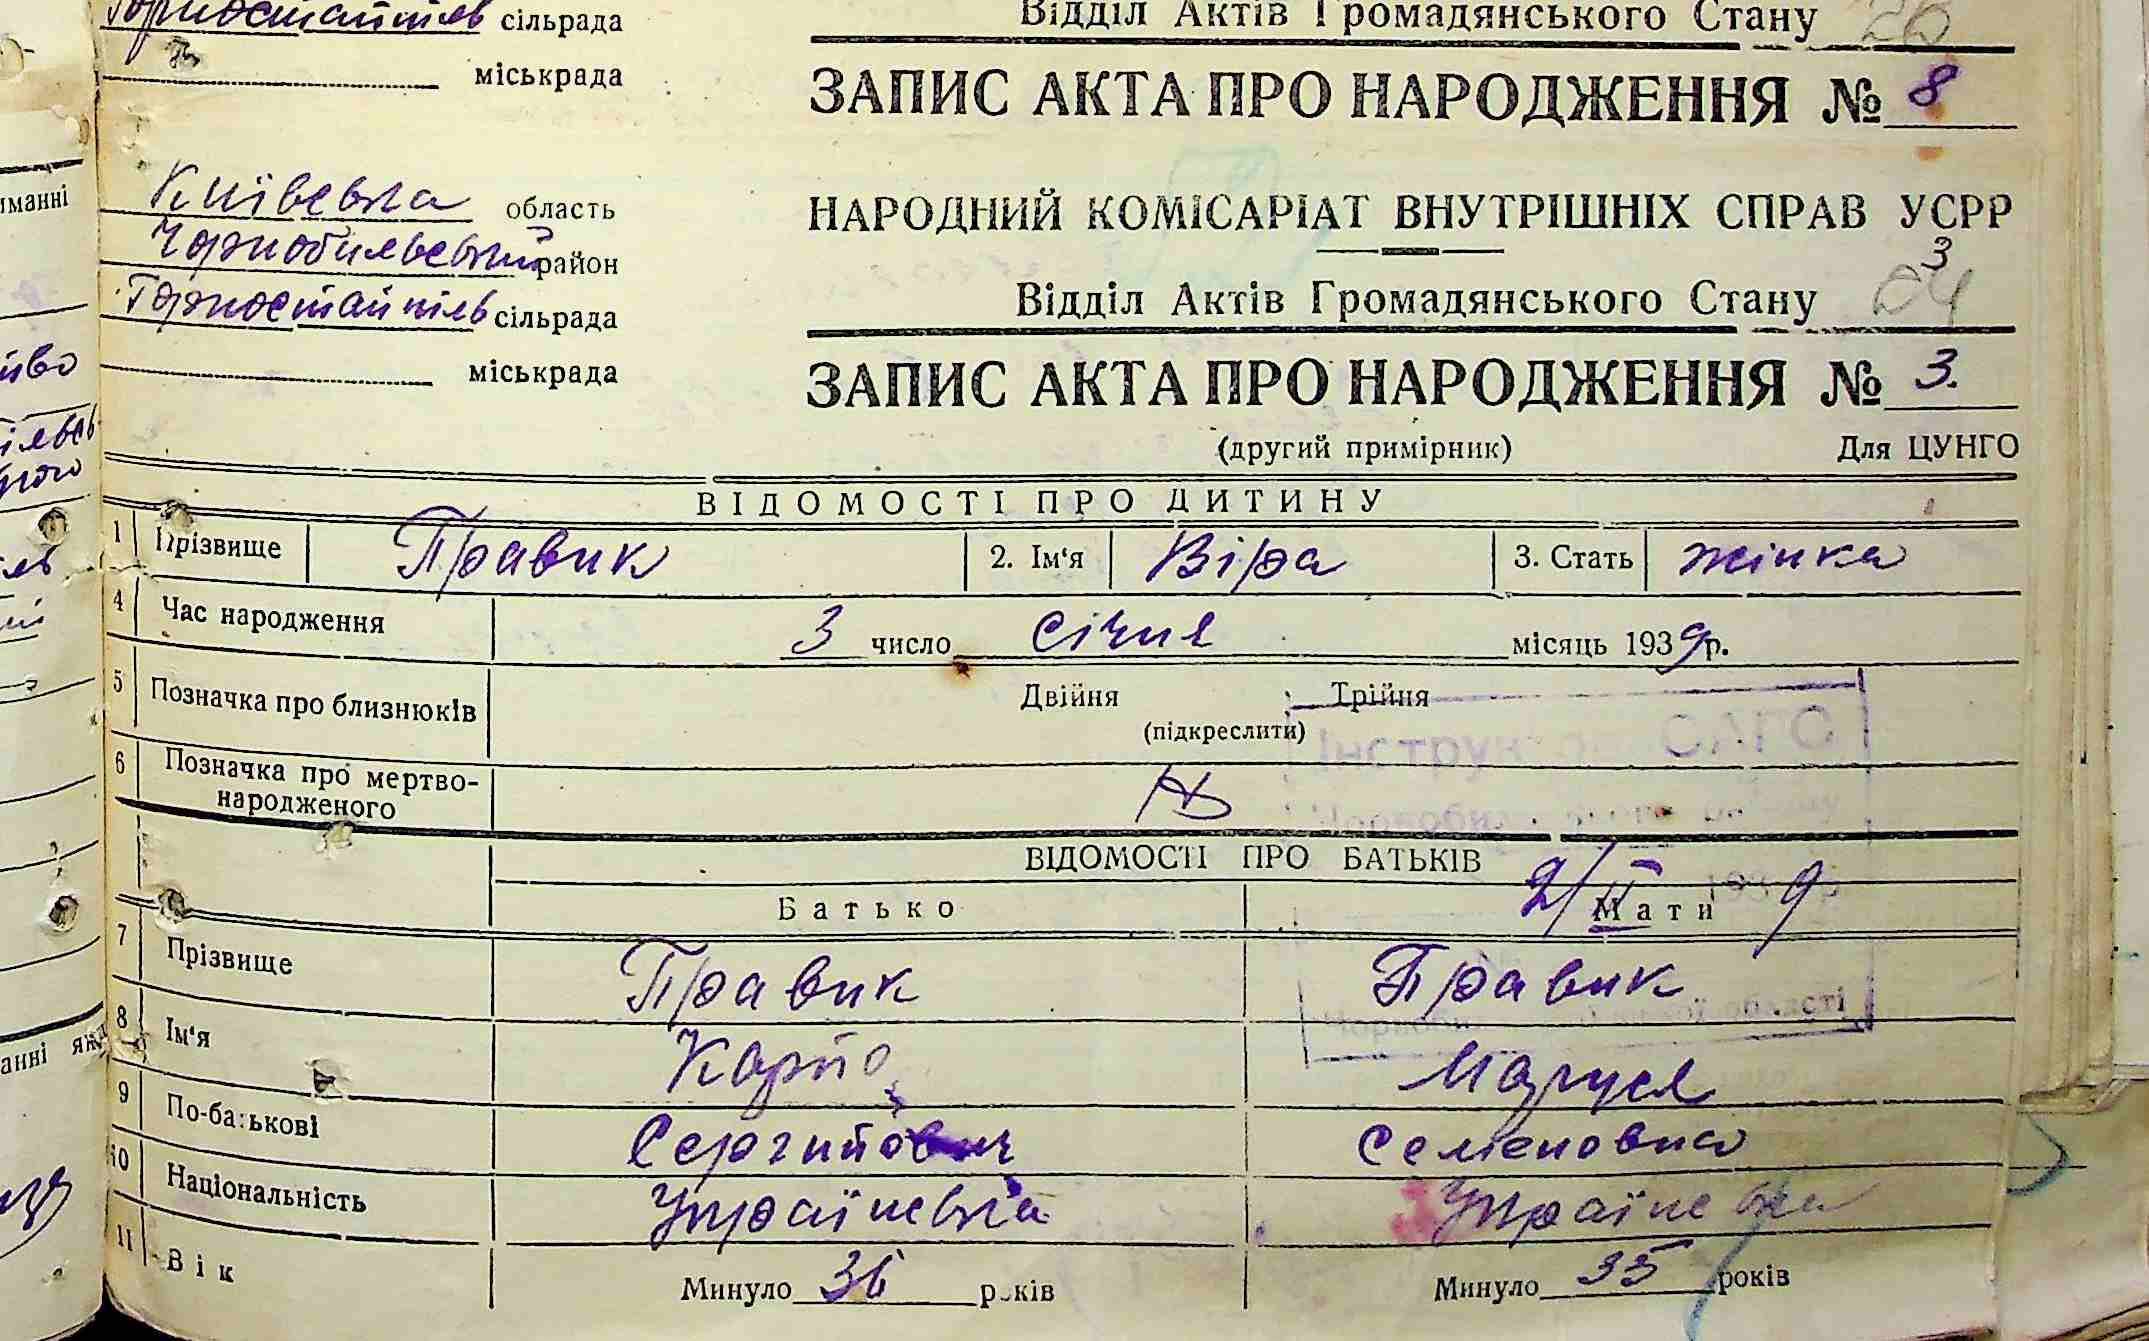 Горностайпіль сільрада
Відділ Актів Громадянського Стану 26
міськрада
ЗАПИС АКТА ПРО НАРОДЖЕННЯ № 8
Київська область
НАРОДНИЙ КОМІСАРІАТ ВНУТРІШНІХ СПРАВ УСРР
Чорнобильський район
3
Горностайпіль сільрада
Відділ Актів Громадянського Стану
міськрада
ЗАПИС АКТА ПРО НАРОДЖЕННЯ № 3.
(другий примірник) Для ЦУНГО
ВІДОМОСТІ ПРО ДИТИНУ
1 Прізвище Правик 2. Ім‘я Віра 3. Стать жінка
4 Час народження 3 число січня місяць 1939 р.
5 Позначка про близнюків Двійня Трійня
(підкреслити)
Інструктор ОАГС
6 Позначка про мертво-
народженого
ВІДОМОСТІ ПРО БАТЬКІВ
2/II 9
Батько Мати
7 Прізвище Правик Правик
області
8 Ім‘я Карпо Маруся
9 По-батькові Сергийович Семеновна
10 Національність Українська Українська
11 Вік Минуло 36 років Минуло 35 років